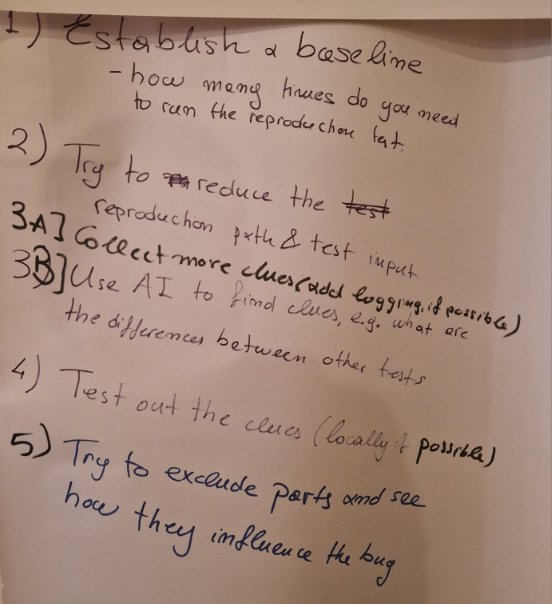 1) Establish a baseline
- how many times do you need
to run the reproduction test.
2) Try to reduce the test
reproduction path & test input
3A] Collect more clues (add logging, if possible)
3B] Use AI to find clues, e.g. what are
the differences between other tests
4) Test out the clues (locally if possible)
5) Try to exclude parts and see
how they influence the bug